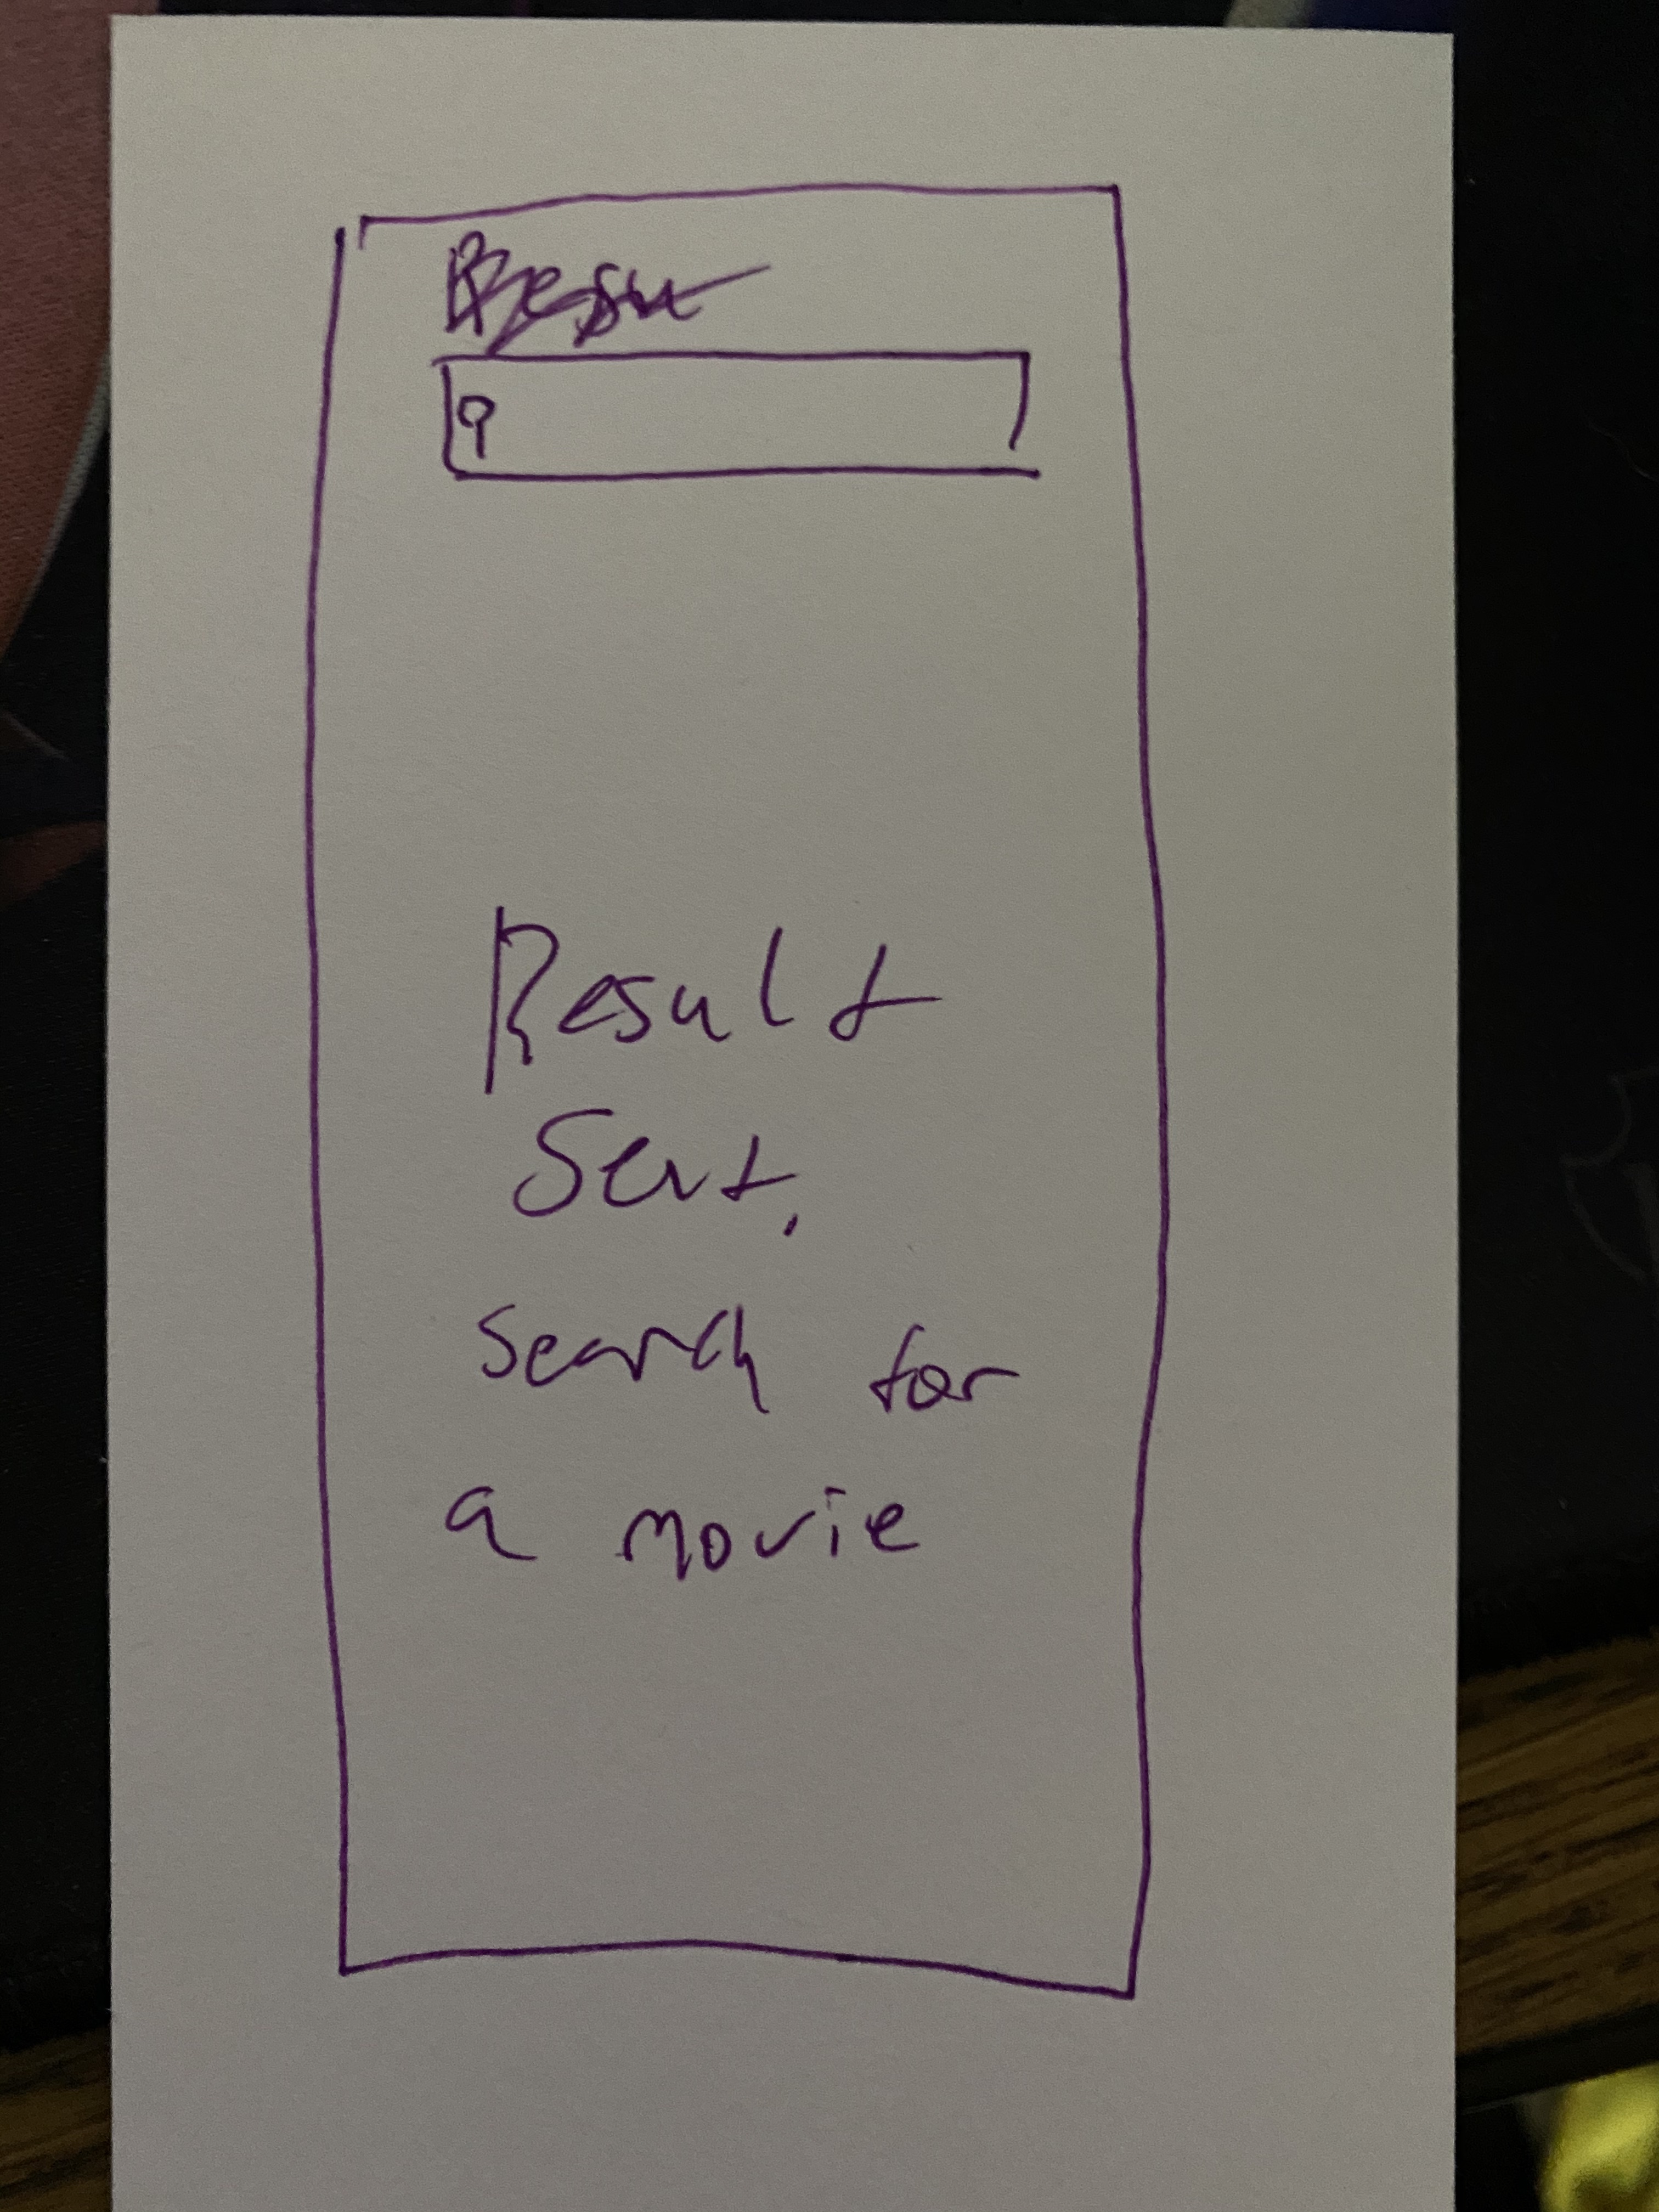 Result
Sent.
Search for
a movie